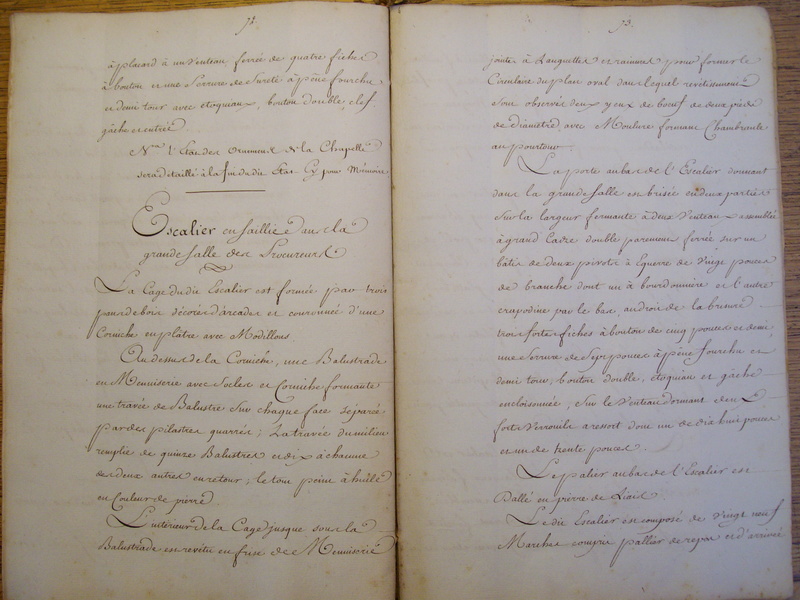 72
à placard à un Venteau, ferrée de quatre fiches
à bouton et une Serrure de Sureté à pêne fourchu
et demi tour avec étoquiaux, bouton double, clef
gâche et entrée
Nta l'Etat des Ornemens de la Chapelle
sera détaillé à la fin du dit Etat Cy pour Mémoire
Escalier en saillie dans la
grande Salle des Procureurs
La Cage du dit Escalier est formée par trois
pans de bois décorés d'arcades et couronnée d'une
Corniche en plâtre avec Modillons
Au dessus de la Corniche, une Balustrade
en Menuiserie avec Socles et Corniche formante
une travée de Balustre Sur chaque face séparée
par des pilastres quarrés; La travée du milieu
remplie de quinze Balustres et dix à chacune
des deux autres en retour; le tout peint à huile
en Couleur de pierre
L'intérieur de la Cage jusque sous la
Balustrade est revêtu en frise de Menuiserie
73
jointe à Languettes et rainures pour former le
Circulaire du plan oval dans lequel revêtissement
sont observés deux yeux de boeuf de deux pieds
de diamètre, avec Moulure formant Chambranle
au pourtour
La porte au bas de l'Escalier donnant
dans la grande Salle est brisée en deux parties
Sur la largeur fermante à deux Venteaux assemblés
à grand Cadre double parement ferrée sur un
bâtis de deux pivots à Equerre de Vingt pouces
de branche dont un à bourdonnière et l'autre
crapodine par le bas, au droit de la brisure
trois fortes fiches à bouton de cinq pouces et demi,
une Serrure de Sept pouces à pêne fourchu et
demi tour, bouton double, étoquiau et gâche
encloisonnée; Sur le Venteau dormant deux
forts Verrouils a ressort dont un de dix huit pouces
et un de trente pouces
Le palier au bas de l'Escalier est
Dallé en pierre de Liais
Le dit Escalier est composé de Vingt neuf
Marches compris pallier de repos et d'arrivée